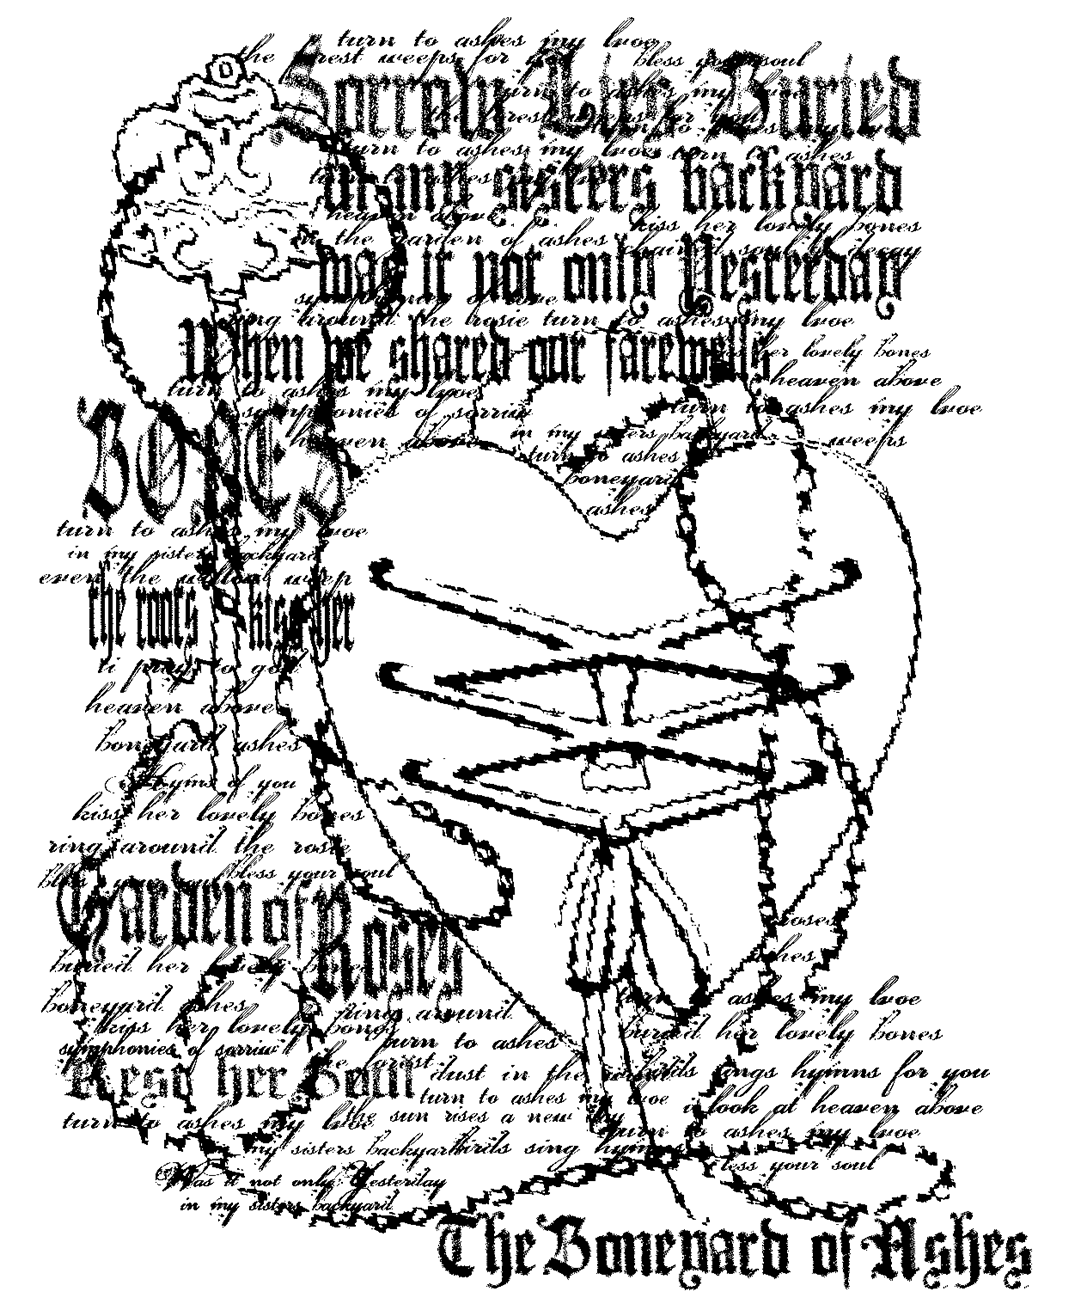 turn to ashes my lvoe
the forest weeps for you bless your soul
Sorrow Lies Buried
turn to ashes my lvoe
the forest weeps for you
turn to ashes my lvoe turn to ashes
in my sisters backyard
heaven above kiss her lovely bones
in the garden of ashes chained souls decay
was it not only Yesterday
symphonies of lvoe
ring around the rosie turn to ashes my lvoe
When we shared our farewells
her lovely bones
heaven above
turn to ashes my lvoe turn to ashes my lvoe
symphonies of sorriw
BONES
heaven above in my sisters backyard weeps
turn to ashes
boneyard
ashes
turn to ashes my lvoe
in my sisters backyard
even the willow weep
the roots kiss her
ti pray to god
heaven above
boneyard ashes
Hyms of you
kiss her lovely bones
ring around the rosie
bless your soul
Garden of Roses
roses
ashes
buried her lovely
boneyard ashes
ring around
turn to ashes my lvoe
kiss her lovely bones
buried her lovely bones
turn to ashes
symphonies of sorriw
the forest
Rest her Soul
dust in the
birds sings hymns for you
turn to ashes my lvoe
i look at heaven above
turn to ashes my lvoe
the sun rises a new day
turn to ashes my lvoe
my sisters backyard
birds sing hymns
bless your soul
Was it not only Yesterday
in my sisters backyard
The Boneyard of Ashes